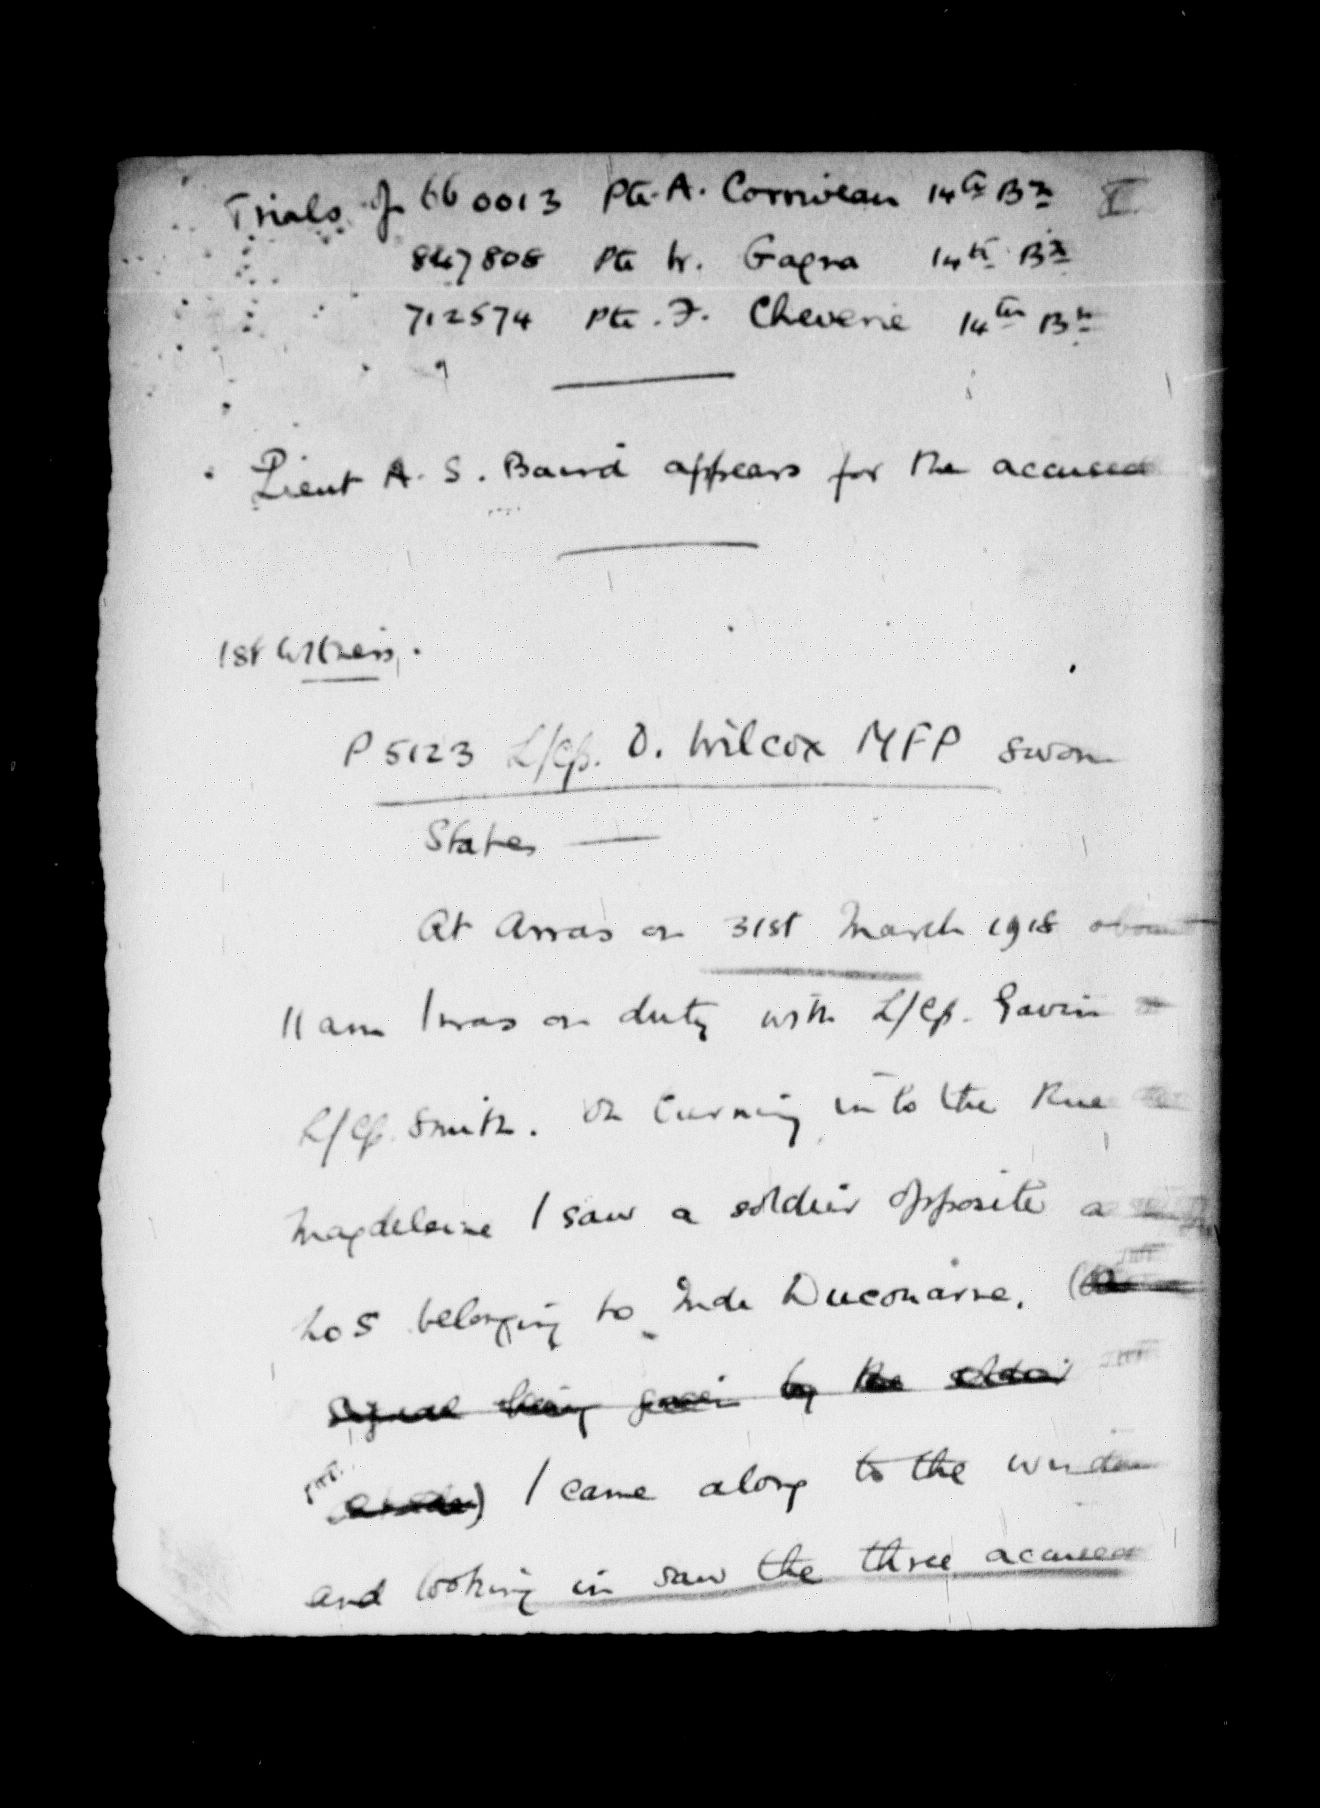 Trials of 660013 Pte. A. Corriveau 14th Bn II
847808 Pte W. Gagna 14th Bn
712574 Pte. F. Cheverie 14th Bn
Lieut A. S. Baird appears for the accused
1st Witness.
P 5123 L/Cp. O. Wilcox MFP sworn
States —
At Arras on 31st March 1918 about
11 am I was on duty with L/Cp. Gavin
L/Cp. Smith. On turning into the Rue
Magdeleine I saw a soldier opposite a
No 5 belonging to Mde Duconarne. (
signal being given by the soldier
) I came along to the window
and looking in saw the three accused